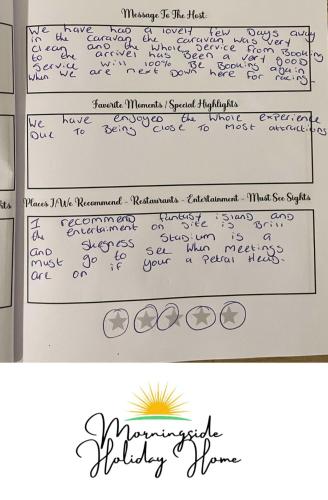 Message To The Host
We have had a lovely few Days away
in the caravan the caravan was very
clean and the whole service from Booking
to the arrivel has Been a very good
service will 100% Be Booking again
when we are next Down here for racing.
Favorite Moments / Special Highlights
We have enjoyed the whole experience
Due To Being close To most attractions
Places I/We Recommend - Restaurants - Entertainment - Must See Sights
I recommend fantasy island and
the entertaiment on site is Brill
and Skegness Stadium is a
must go to see when meetings
are on if your a Petral Head.
Morningside
Holiday Home